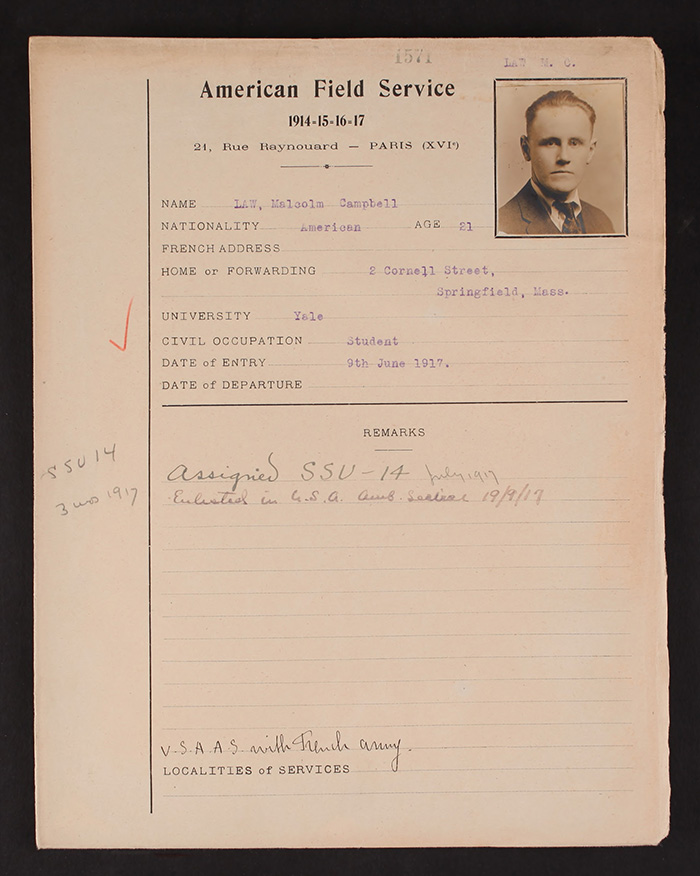 1571
LAW M. C.
American Field Service
1914=15=16=17
21, Rue Raynouard — PARIS (XVIᵉ)
NAME LAW, Malcolm Campbell
NATIONALITY American AGE 21
FRENCH ADDRESS
HOME or FORWARDING 2 Cornell Street,
Springfield, Mass.
UNIVERSITY Yale
CIVIL OCCUPATION Student
DATE of ENTRY 9th June 1917.
DATE of DEPARTURE
REMARKS
SSU 14
3 mos 1917
Assigned SSU-14 July 1917
Enlisted in U.S.A. Amb. Section 19/9/17
U-S-A-A-S with French army.
LOCALITIES of SERVICES